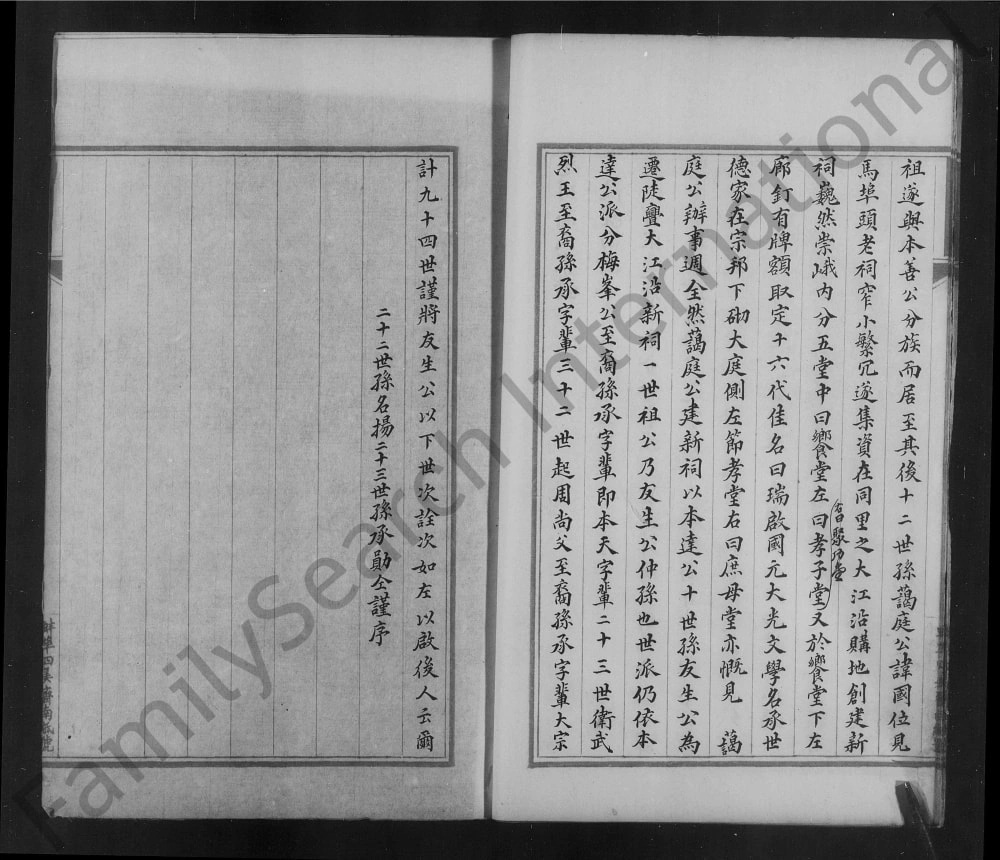 祖遂與本善公分族而居至其後十二世孫藹庭公諱國位見
馬埠頭老祠窄小繁冗遂集資在同里之大江沿購地創建新
祠巍然崇峨內分五堂中曰饗堂左曰孝子堂又於饗堂下左
右曰聚功堂
廊釘有牌額取定十六代佳名曰瑞啟國元大光文學名承世
德家在宗邦下砌大庭側左節孝堂右曰庶母堂亦慨見 藹
庭公辦事週全然藹庭公建新祠以本達公十世孫友生公為
遷陡亹大江沿新祠一世祖公乃友生公仲孫也世派仍依本
達公派分梅峯公至裔孫承字輩即本天字輩二十三世衛武
烈王至裔孫承字輩三十二世起周尚父至裔孫承字輩大宗
計九十四世謹將友生公以下世次詮次如左以啟後人云爾
二十二世孫名揚二十三世孫承勛仝謹序
FamilySearch International